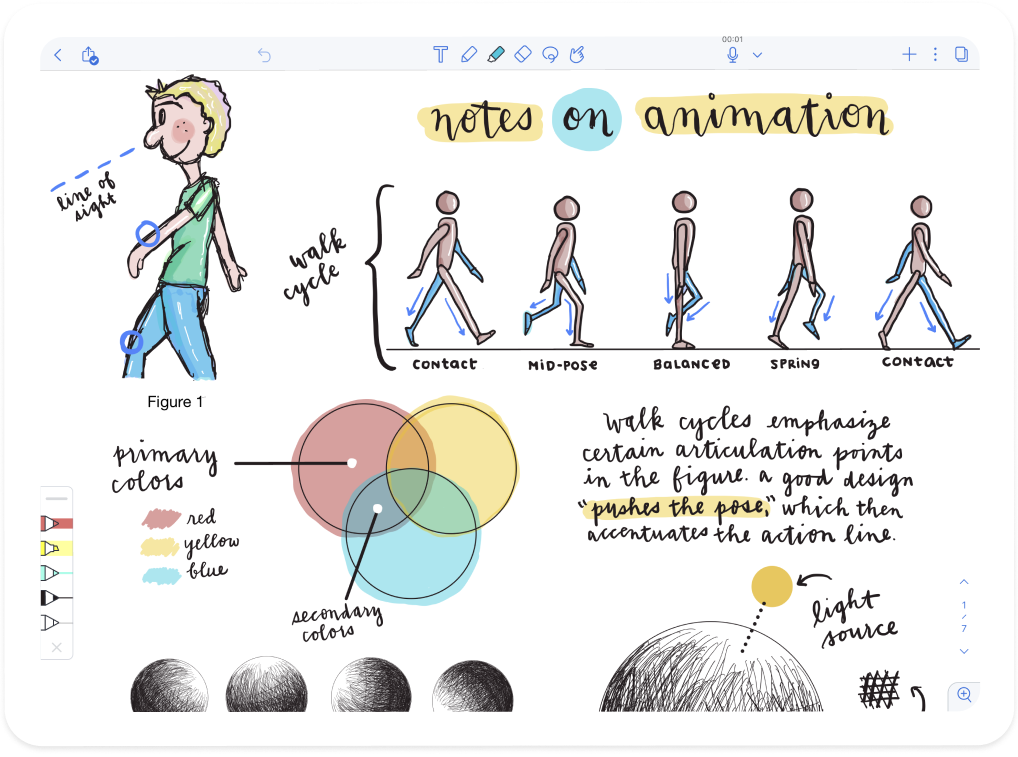 00:01
notes on animation
line of
sight
walk
cycle
contact
mid-pose
balanced
spring
contact
Figure 1
primary
colors
red
yellow
blue
secondary
colors
walk cycles emphasize
certain articulation points
in the figure. a good design
"pushes the pose," which then
accentuates the action line.
light
source
1
/
7